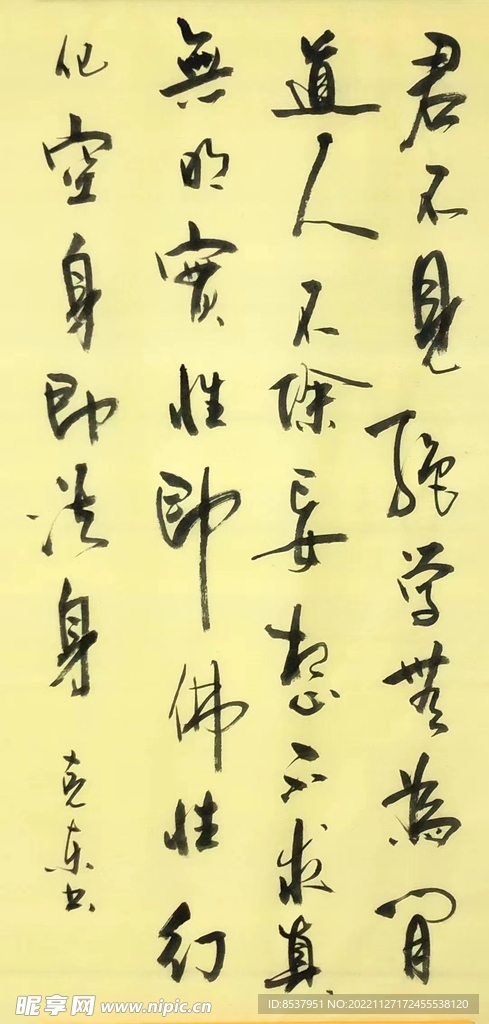 君不見絕学無為閒
道人不除妄想不求真
無明實性即佛性幻
化空身即法身
克东书
昵享网 www.nipic.cn
ID:8537951 NO:20221127172455538120